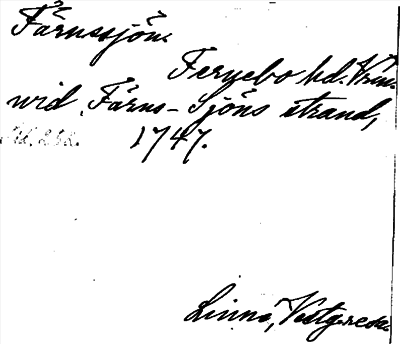 Färnssjön.
Fernebo hd. Vrml.
wid Färns-Sjöns strand,
1747.
Linné, Vestg. resa.